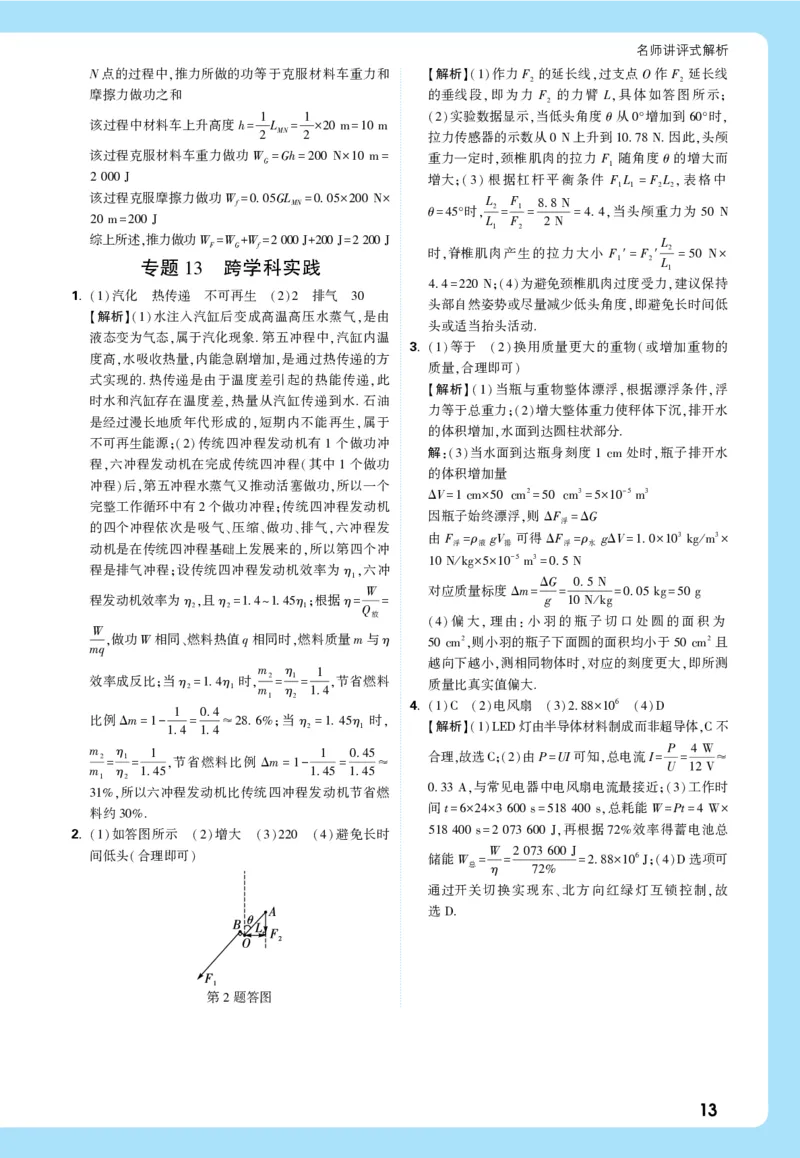 名师讲评式解析
N点的过程中,推力所做的功等于克服材料车重力和
摩擦力做功之和
该过程中材料车上升高度 h=\frac{1}{2}L_{MN}=\frac{1}{2}×20 m=10 m
该过程克服材料车重力做功 W_G=Gh=200 N×10 m=
2 000 J
该过程克服摩擦力做功 W_f=0.05GL_{MN}=0.05×200 N×
20 m=200 J
综上所述,推力做功 W_F=W_G+W_f=2 000 J+200 J=2 200 J
专题 13 跨学科实践
1. (1)汽化 热传递 不可再生 (2)2 排气 30
【解析】(1)水注入汽缸后变成高温高压水蒸气,是由
液态变为气态,属于汽化现象. 第五冲程中,汽缸内温
度高,水吸收热量,内能急剧增加,是通过热传递的方
式实现的. 热传递是由于温度差引起的热能传递,此
时水和汽缸存在温度差,热量从汽缸传递到水. 石油
是经过漫长地质年代形成的,短期内不能再生,属于
不可再生能源;(2)传统四冲程发动机有 1 个做功冲
程,六冲程发动机在完成传统四冲程(其中 1 个做功
冲程)后,第五冲程水蒸气又推动活塞做功,所以一个
完整工作循环中有 2 个做功冲程;传统四冲程发动机
的四个冲程依次是吸气、压缩、做功、排气,六冲程发
动机是在传统四冲程基础上发展来的,所以第四个冲
程是排气冲程;设传统四冲程发动机效率为 η_1,六冲
程发动机效率为 η_2,且 η_2=1.4~1.45η_1;根据 η=\frac{W}{Q_放}=
\frac{W}{mq},做功 W 相同、燃料热值 q 相同时,燃料质量 m 与 η
效率成反比;当 η_2=1.4η_1 时,\frac{m_2}{m_1}=\frac{η_1}{η_2}=\frac{1}{1.4},节省燃料
比例 Δm=1-\frac{1}{1.4}=\frac{0.4}{1.4}≈28.6%;当 η_2=1.45η_1 时,
\frac{m_2}{m_1}=\frac{η_1}{η_2}=\frac{1}{1.45},节省燃料比例 Δm=1-\frac{1}{1.45}=\frac{0.45}{1.45}≈
31%,所以六冲程发动机比传统四冲程发动机节省燃
料约 30%.
2. (1)如答图所示 (2)增大 (3)220 (4)避免长时
间低头(合理即可)
A
B
θ
L
F_2
O
F_1
第 2 题答图
【解析】(1)作力 F_2 的延长线,过支点 O 作 F_2 延长线
的垂线段,即为力 F_2 的力臂 L,具体如答图所示;
(2)实验数据显示,当低头角度 θ 从 0°增加到 60°时,
拉力传感器的示数从 0 N 上升到 10.78 N. 因此,头颅
重力一定时,颈椎肌肉的拉力 F_1 随角度 θ 的增大而
增大;(3)根据杠杆平衡条件 F_1L_1=F_2L_2,表格中
θ=45°时,\frac{L_2}{L_1}=\frac{F_1}{F_2}=\frac{8.8 N}{2 N}=4.4,当头颅重力为 50 N
时,脊椎肌肉产生的拉力大小 F_1′=F_2′\frac{L_2}{L_1}=50 N×
4.4=220 N;(4)为避免颈椎肌肉过度受力,建议保持
头部自然姿势或尽量减少低头角度,即避免长时间低
头或适当抬头活动.
3. (1)等于 (2)换用质量更大的重物(或增加重物的
质量,合理即可)
【解析】(1)当瓶与重物整体漂浮,根据漂浮条件,浮
力等于总重力;(2)增大整体重力使秤体下沉,排开水
的体积增加,水面到达圆柱状部分.
解:(3)当水面到达瓶身刻度 1 cm 处时,瓶子排开水
的体积增加量
ΔV=1 cm×50 cm²=50 cm³=5×10⁻⁵ m³
因瓶子始终漂浮,则 ΔF_浮=ΔG
由 F_浮=ρ_液gV_排 可得 ΔF_浮=ρ_水gΔV=1.0×10³ kg/m³×
10 N/kg×5×10⁻⁵ m³=0.5 N
对应质量标度 Δm=\frac{ΔG}{g}=\frac{0.5 N}{10 N/kg}=0.05 kg=50 g
(4)偏大,理由:小羽的瓶子切口处圆的面积为
50 cm²,则小羽的瓶子下面圆的面积均小于 50 cm² 且
越向下越小,测相同物体时,对应的刻度更大,即所测
质量比真实值偏大.
4. (1)C (2)电风扇 (3)2.88×10⁶ (4)D
【解析】(1)LED 灯由半导体材料制成而非超导体,C 不
合理,故选 C;(2)由 P=UI 可知,总电流 I=\frac{P}{U}=\frac{4 W}{12 V}≈
0.33 A,与常见电器中电风扇电流最接近;(3)工作时
间 t=6×24×3 600 s=518 400 s,总耗能 W=Pt=4 W×
518 400 s=2 073 600 J,再根据 72%效率得蓄电池总
储能 W_总=\frac{W}{η}=\frac{2 073 600 J}{72%}=2.88×10⁶ J;(4)D 选项可
通过开关切换实现东、北方向红绿灯互锁控制,故
选 D.
13